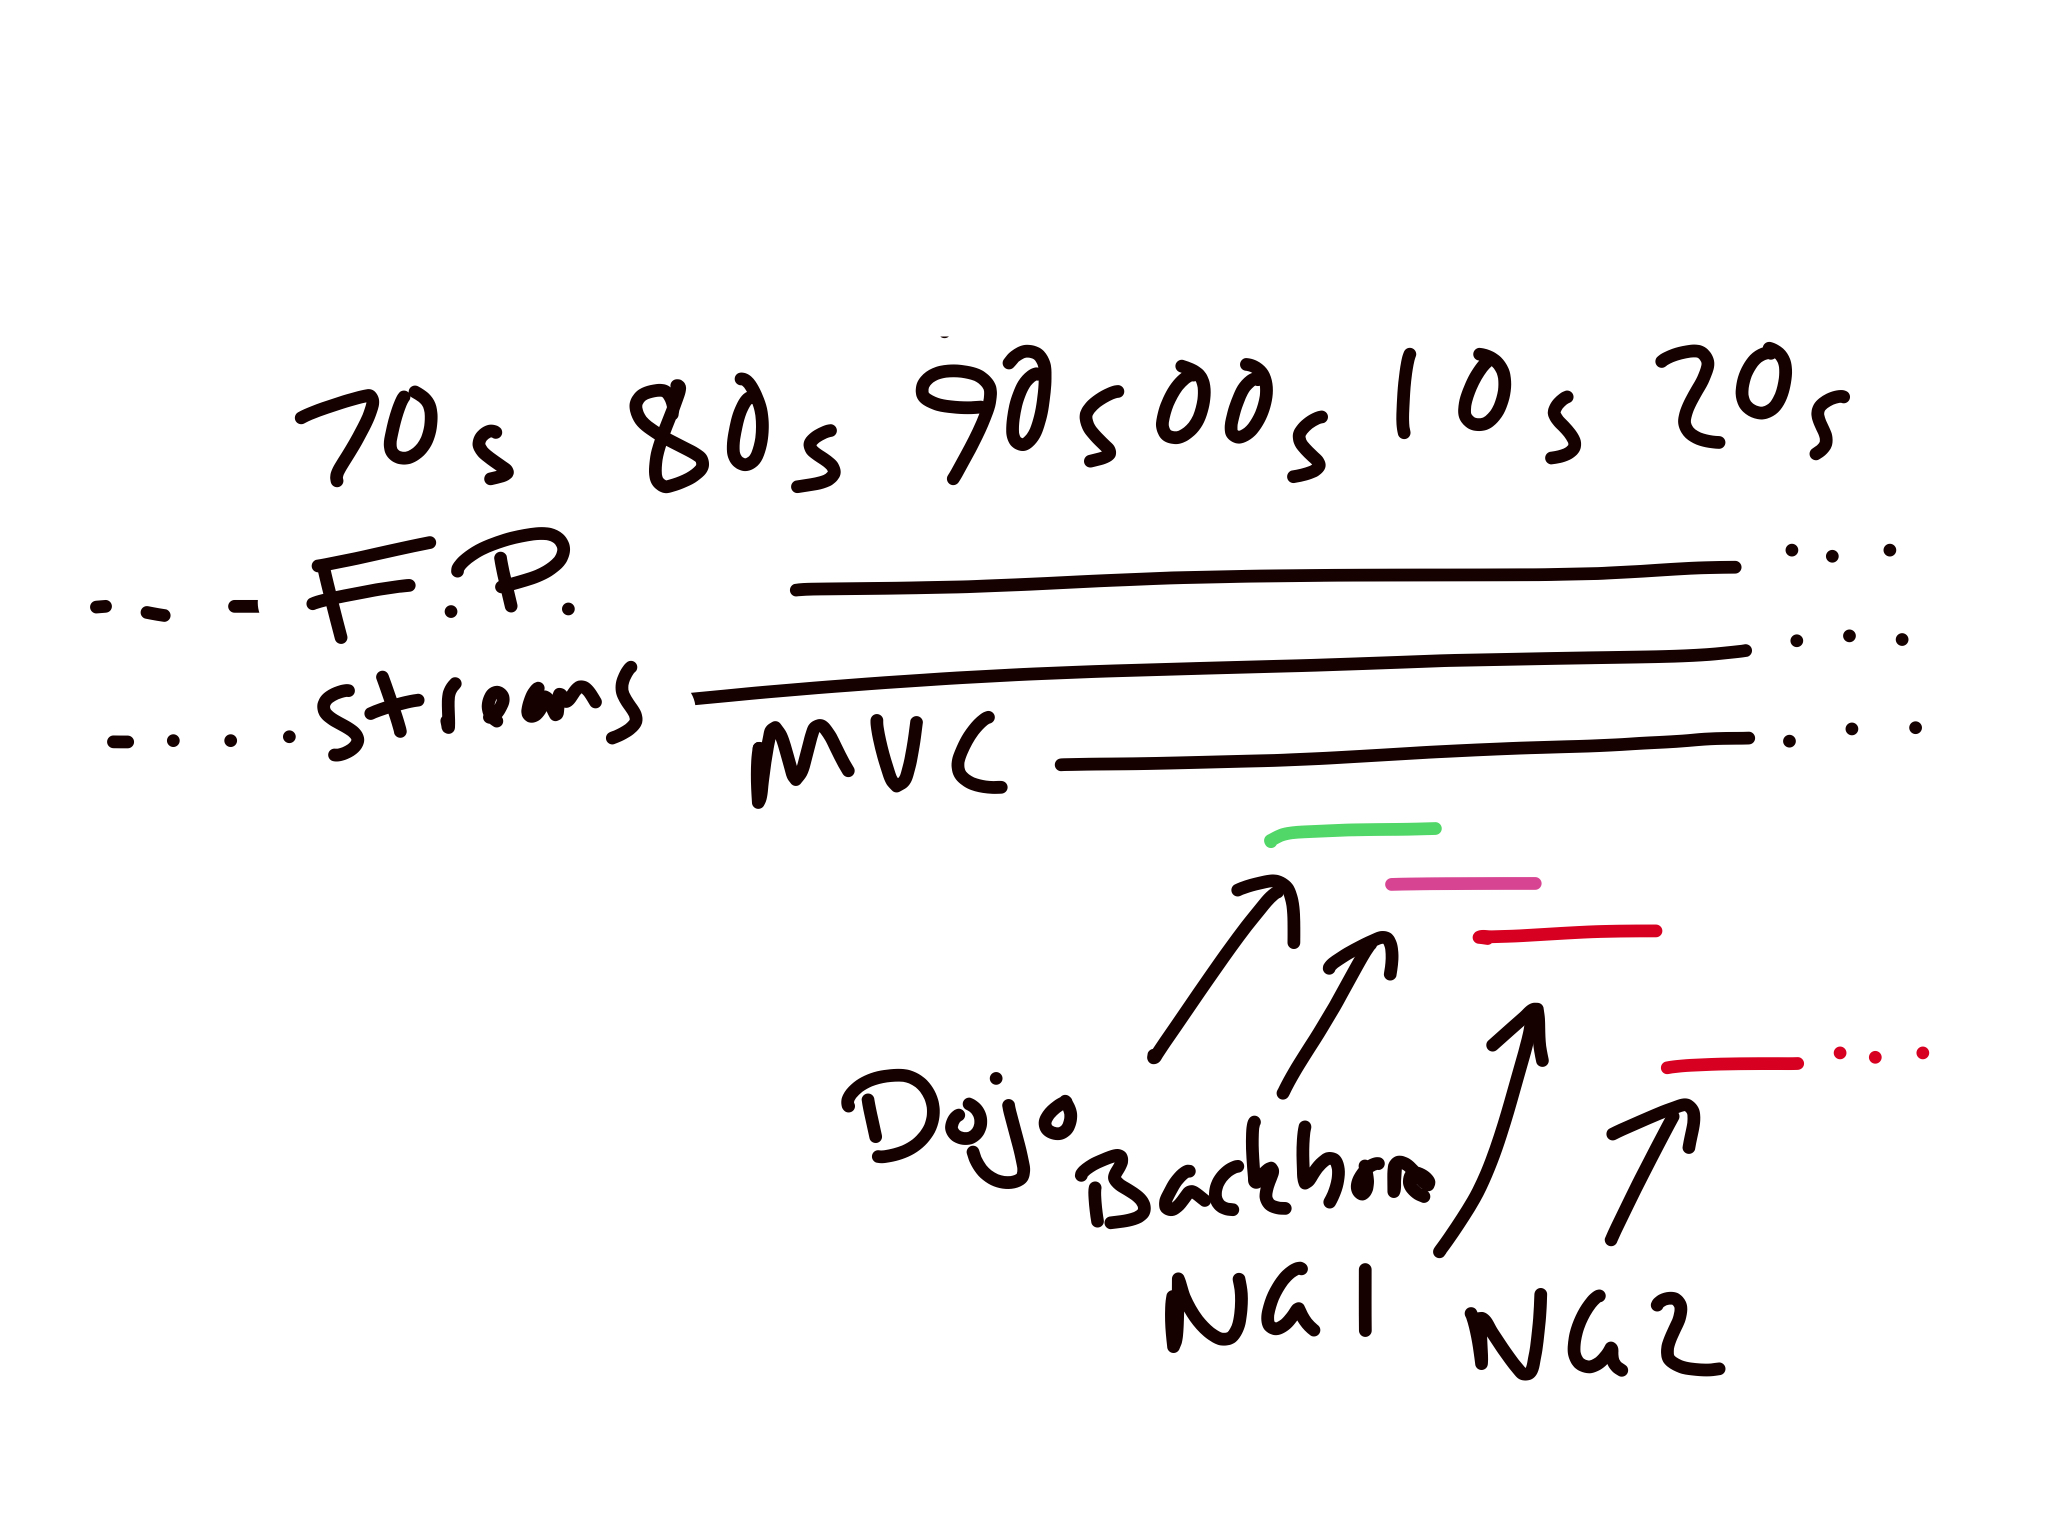 70s 80s 90s 00s 10s 20s
F.P.
streams
MVC
Dojo
Backbone
NG1
NG2